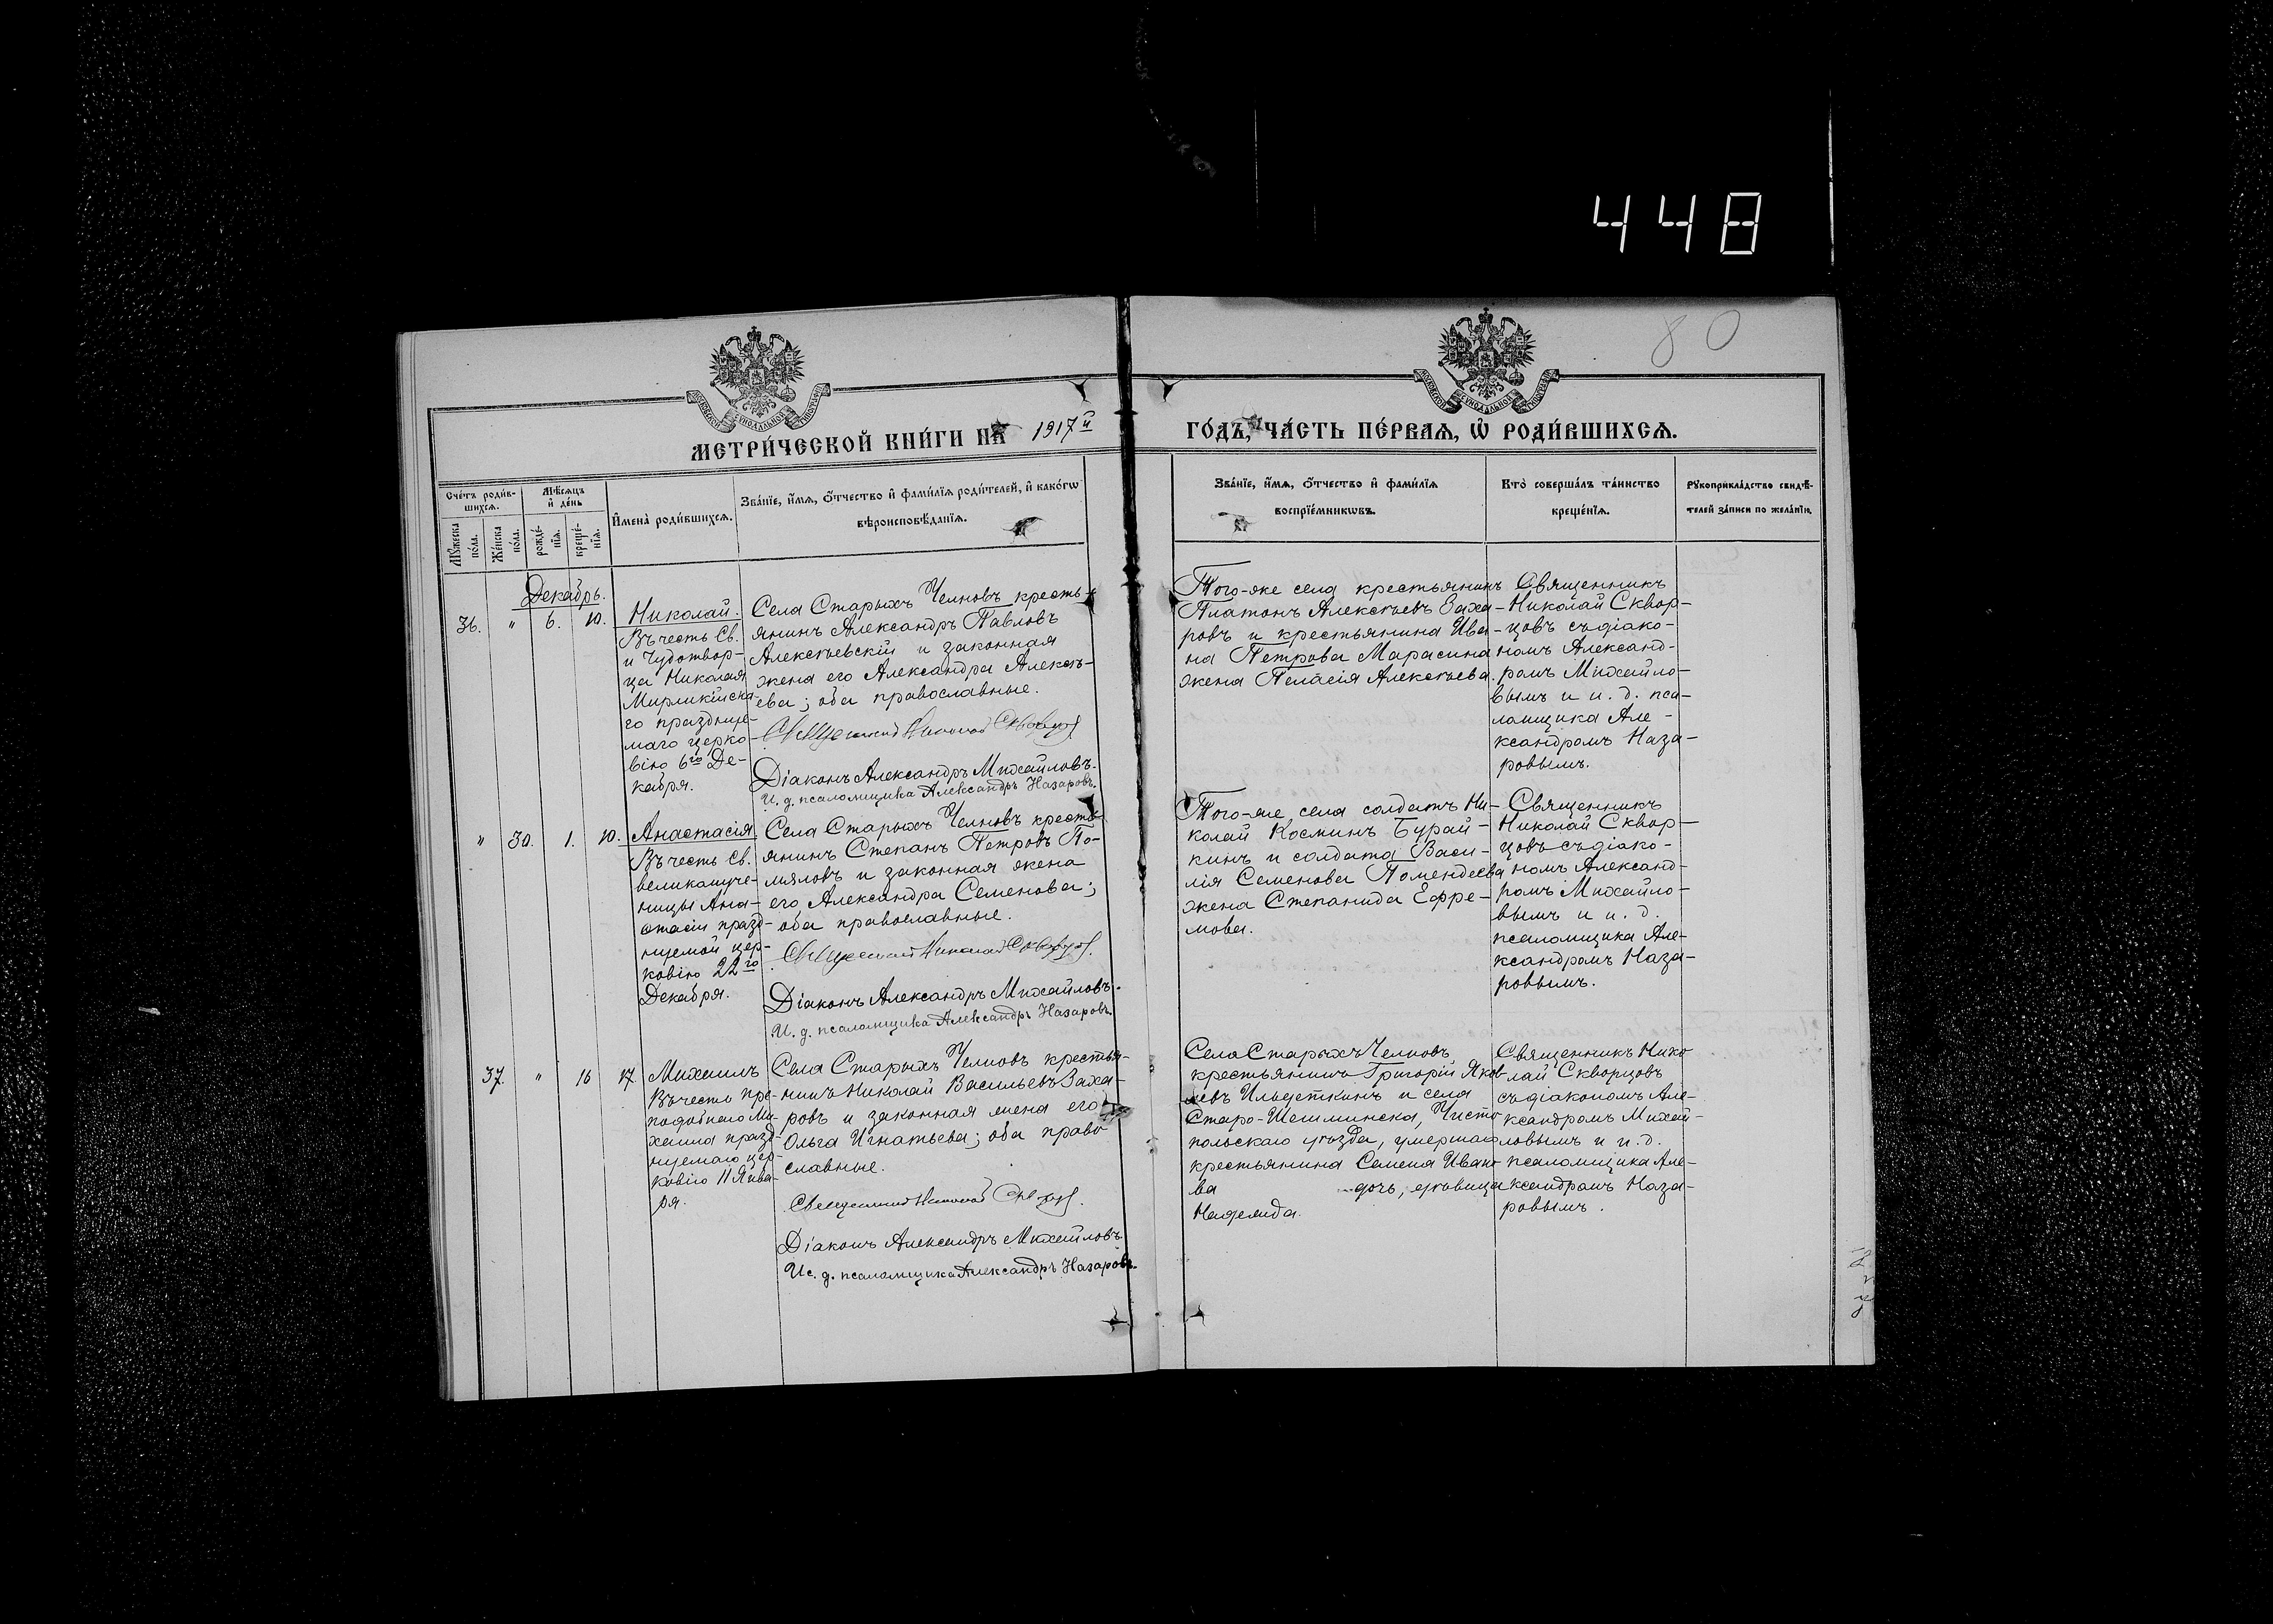 448
80
МЕТРИ́ЧЕСКОЙ КНИ́ГИ НА 1917й
ГО́ДЪ, ЧА́СТЬ ПЕ́РВАЯ, Ѡ҆ РОДИ́ВШИХСЯ.
Сче́тъ роди́в-
шихся.
Му́жеска
по́ла.
Же́нска
по́ла.
Мѣ́сяцъ
и҆ де́нь
рожде́-
нїя.
креще́-
нїя.
И҆мена̀ роди́вшихся.
Зва́нїе, и҆́мя, о҆́тчество и҆ фами́лїя роди́телей, и҆ како́гѡ
вѣроисповѣ́данїя.
Зва́нїе, и҆́мя, о҆́тчество и҆ фами́лїя
воспрїе́мникѡвъ.
Кто̀ соверша́лъ та́инство
креще́нїя.
Рукоприкла́дство свидѣ́-
телей за́писи по жела́нїю.
Декабрь.
36. " 6. 10.
Николай.
Въ честь Св.
и Чудотвор-
ца Николая
Мирликійска-
го празднуе-
маго церко-
вію 6го Де-
кабря.
Села Старыхъ Челновъ кресть-
янинъ Александръ Павловъ
Алексѣевскій и законная
жена его Александра Алексѣ-
ева; оба православные.
Священникъ Николай Скворцовъ
Діаконъ Александръ Михайловъ.
И. д. псаломщика Александръ Назаровъ.
Того-же села крестьянинъ
Платонъ Алексѣевъ Заха-
ровъ и крестьянина Ива-
на Петрова Марасина
жена Пелагія Алексѣева.
Священникъ
Николай Сквор-
цовъ съ діако-
номъ Александ-
ромъ Михайло-
вымъ и и. д. пса-
ломщика Але-
ксандромъ Наза-
ровымъ.
" 30. 1. 10.
Анастасія
Въ честь Св.
великомуче-
ницы Ана-
стасіи празд-
нуемой цер-
ковію 22го
Декабря.
Села Старыхъ Челновъ кресть-
янинъ Степанъ Петровъ По-
мяловъ и законная жена
его Александра Семенова;
оба православные.
Священникъ Николай Скворцовъ.
Діаконъ Александръ Михайловъ.
И. д. псаломщика Александръ Назаровъ.
Того-же села солдатъ Ни-
колай Косминъ Бурай-
кинъ и солдата Васи-
лія Семенова Помендеева
жена Степанида Ефре-
мова.
Священникъ
Николай Сквор-
цовъ съ діако-
номъ Александ-
ромъ Михайло-
вымъ и и. д.
псаломщика Але-
ксандромъ Наза-
ровымъ.
37. " 16 17.
Михаилъ
Въ честь пре-
подобнаго Ми-
хаила празд-
нуемаго цер-
ковію 11 Янва-
ря.
Села Старыхъ Челновъ крестья-
нинъ Николай Васильевъ Заха-
ровъ и законная жена его
Ольга Игнатьева; оба право
славные.
Священникъ Николай Скворцовъ.
Діаконъ Александръ Михайловъ.
Ис. д. псаломщика Александръ Назаровъ.
Села Старыхъ Челновъ
крестьянинъ Григорій Яков-
левъ Ильеткинъ и села
Старо-Шешминска, Чисто
польскаго уѣзда, умершаго
крестьянина Семена Ивано
ва дочь, дѣвица
Надежда.
Священникъ Нико
лай Скворцовъ
съ діакономъ Але-
ксандромъ Михай-
ловымъ и и. д.
псаломщика Але-
ксандромъ Наза-
ровымъ.